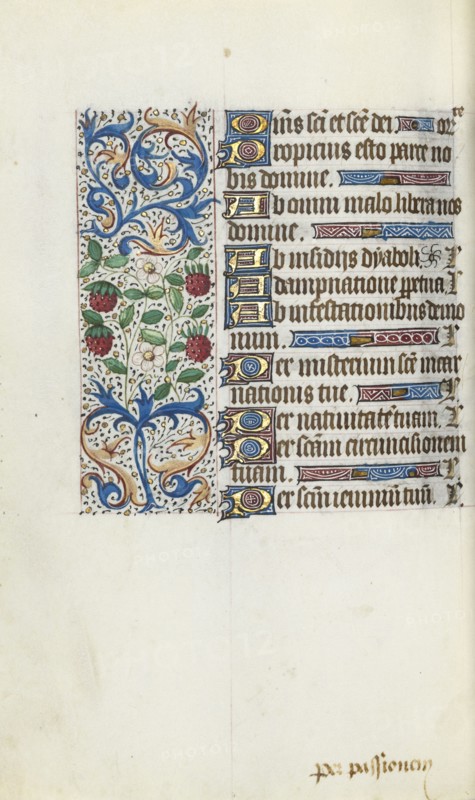 Om̄s sc̄i et sc̄e dei or̄ te
Propicius esto parce no
bis domine.
Ab omni malo libera nos
domine.
Ab insidijs dyaboli. L̄
A dampnatione ꝑpetua. L̄
Ab infestationibus demo
num. L̄
Per misterium sc̄e incar
nationis tue. L̄
Per natiuitatē tuam. L̄
Per sc̄am circuncisionem
tuam. L̄
Per sc̄m ieiuniū tuū. L̄
per passionem